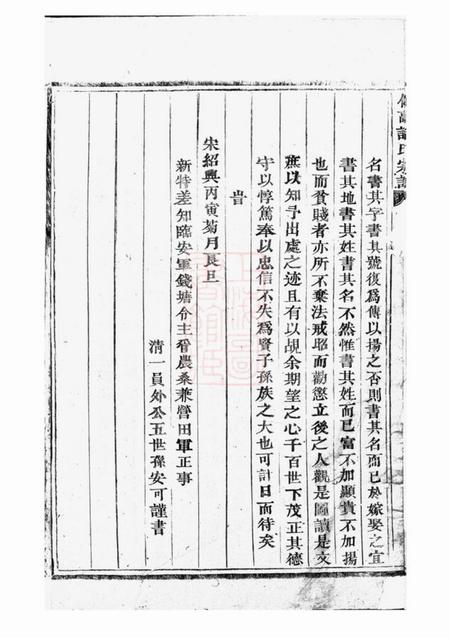 名書其字書其號復爲傳以揚之否則書其名而已於嫁娶之宜
書其地書其姓書其名不然惟書其姓而已富不加顯貴不加揚
也而貧賤者亦所不棄法戒昭而勸懲立後之人觀是圖讀是文
庶以知予出處之迹且有以覘余期望之心千百世下茂正其德
守以惇篤奉以忠信不失爲賢子孫族之大也可計日而待矣
旹
宋紹興丙寅菊月良旦
新特差知臨安軍錢塘令主管農桑兼營田軍正事
清一員外公五世孫安可謹書